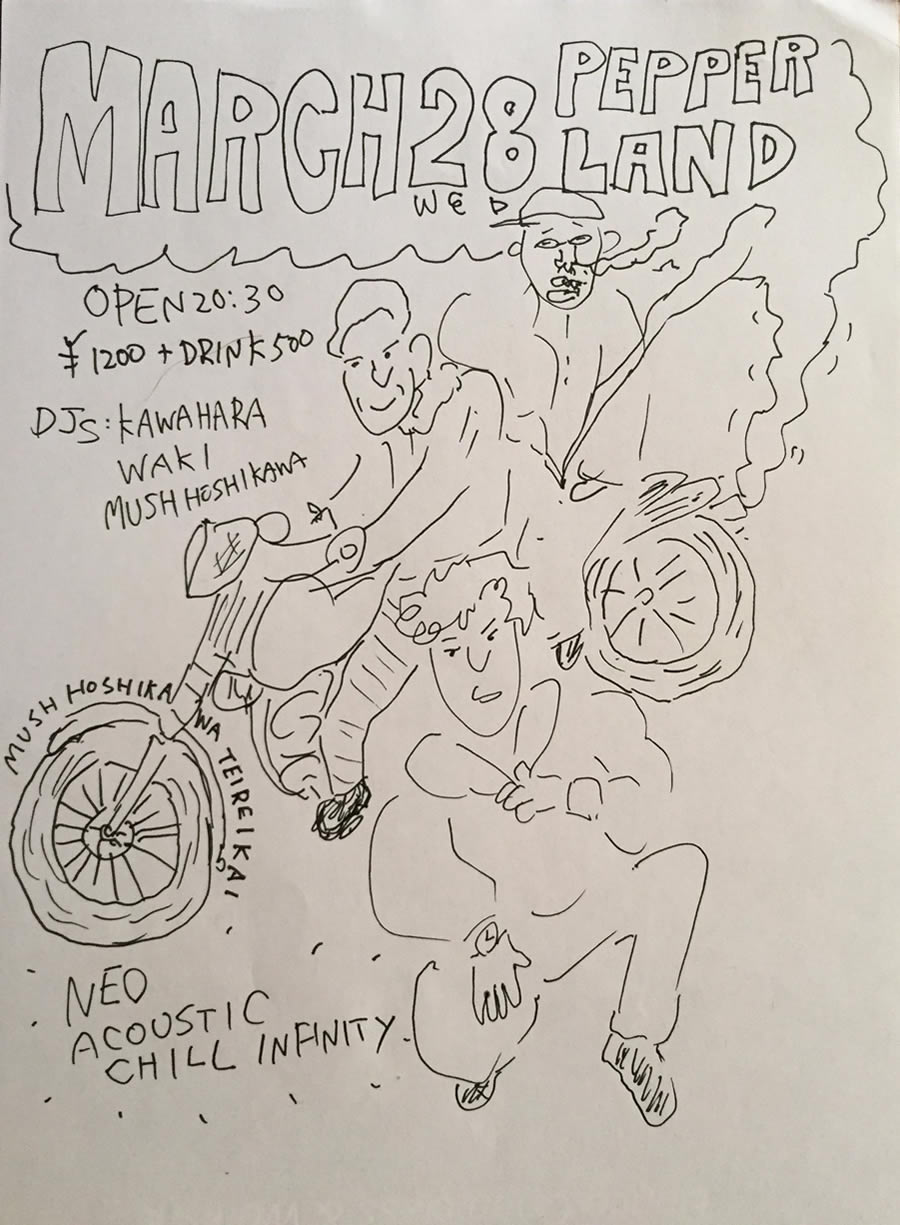 MARCH 28
WED
PEPPER
LAND
OPEN 20:30
¥1200 + DRINK 500
DJs: KAWAHARA
WAKI
MUSH HOSHIKAWA
MUSH HOSHIKAWA TEIREIKAI
NEO
ACOUSTIC
CHILL INFINITY